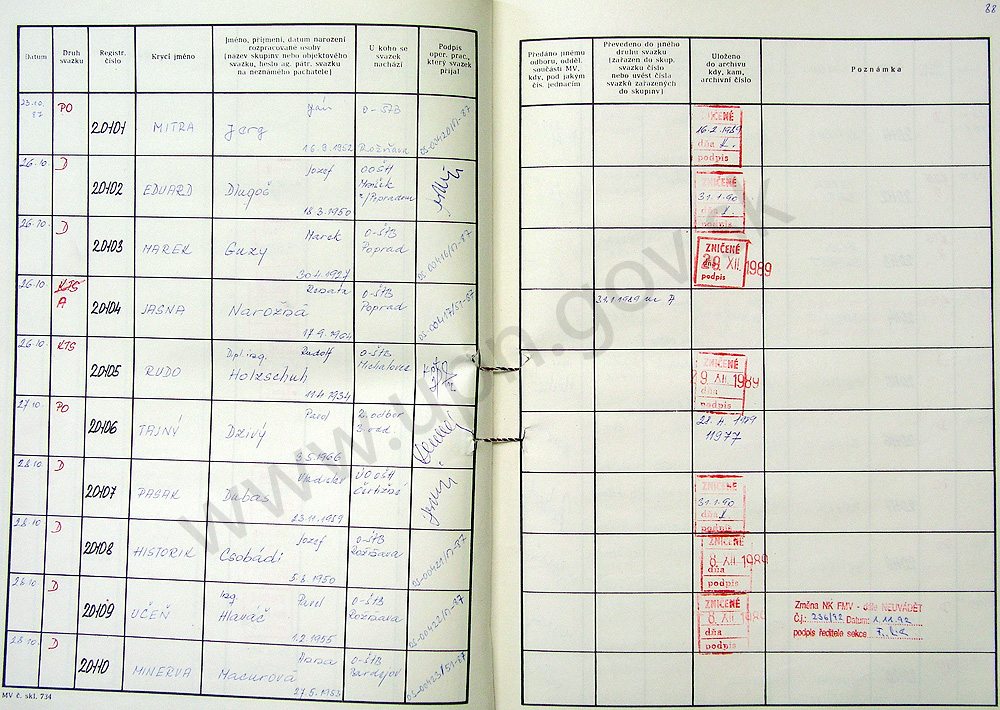 88
Datum
Druh svazku
Registr. číslo
Krycí jméno
Jméno, příjmení, datum narození rozpracované osoby (název skupiny nebo objektového svazku, heslo ag. pátr. svazku na neznámého pachatele)
U koho se svazek nachází
Podpis oper. prac., který svazek přijal
Předáno jinému odboru, odděl. součásti MV, kdy, pod jakým čís. jednacím
Převedeno do jiného druhu svazku (zařazen do skup. svazku číslo nebo uvést čísla svazků zařazených do skupiny)
Uloženo do archivu kdy, kam, archivní číslo
Poznámka
23.10. 87 PO 20101 MITRA Ján Jerg 16.9.1952 O-ŠtB Rožňava OS-00420/51-87
ZNIČENÉ 16.2.1989 dňa podpis
26.10. D 20102 EDUARD Jozef Dlugoš 18.3.1950 OOŠH Poprad
ZNIČENÉ 31.1.90 dňa podpis
26.10. D 20103 MAREK Marek Guzy 30.4.1927 O-ŠtB Poprad OS-00416/51-87
ZNIČENÉ 28. XII. 1989 dňa podpis
26.10. KTS A 20104 JASNA Renáta Narožná 17.9.1964 O-ŠtB Poprad OS-00417/51-87
26.10. KTS 20105 RUDO Dipl. ing. Rudolf Holzschuh 11.4.1934 O-ŠtB Michalovce
ZNIČENÉ 9. XII. 1989 dňa podpis
27.10. PO 20106 TAJNÝ Pavel Dzivý 3.5.1966 2. odbor 3. odd.
1989 11977
28.10. D 20107 PASAK Vladislav Dubas 23.11.1959 OOŠH
ZNIČENÉ 31.1.90 dňa podpis
28.10. D 20108 HISTORIK Jozef Csobádi 5.6.1950 O-ŠtB Rožňava OS-00421/51-87
ZNIČENÉ 8. XII. 1989 dňa podpis
28.10. D 20109 UČEŇ Ing. Pavel Hlaváč 1.2.1955 O-ŠtB Rožňava OS-00422/51-87
ZNIČENÉ 8. XII. 1989 dňa podpis
Změna NK FMV - dále NEUVÁDĚT
Č.j.: 236/92 Datum: 1.11.92
podpis ředitele sekce
28.10. D 20110 MINERVA Macurová 27.5.1953 O-ŠtB Bardejov OS-00423/51-87
MV č. skl. 734
www.upn.gov.sk